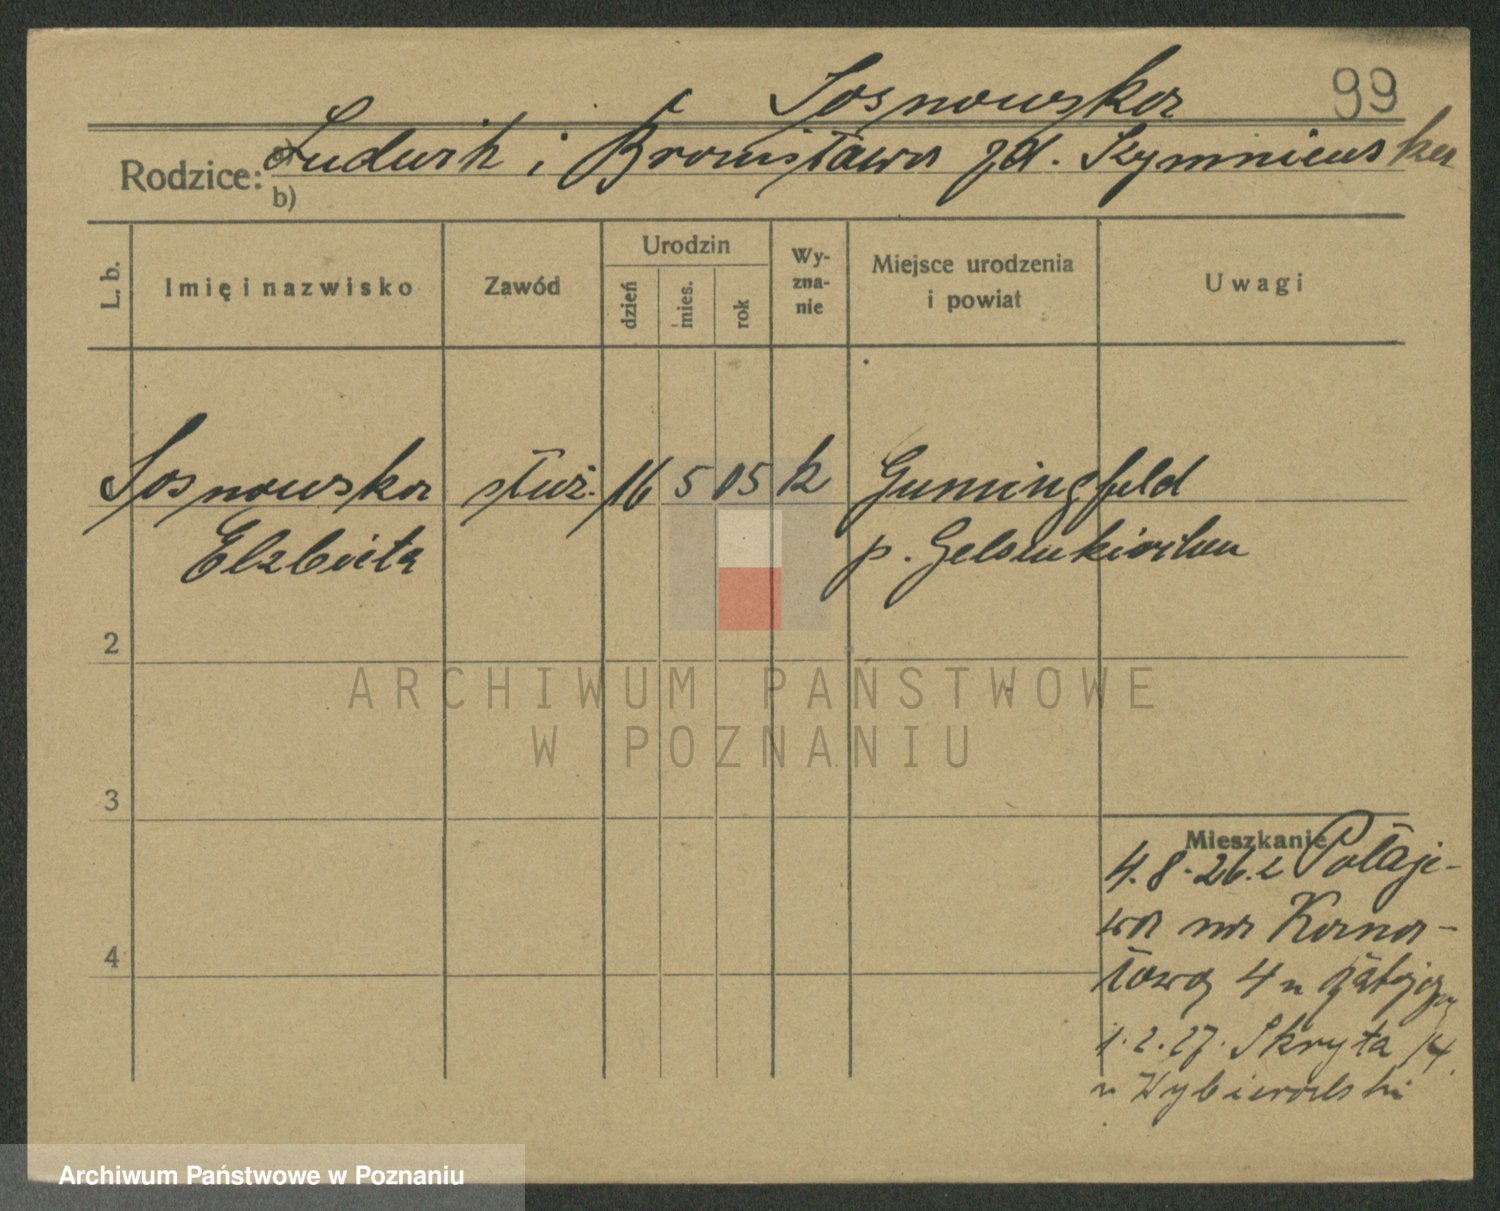 Sosnowska 99
Rodzice: Ludwik i Bronisława zd. Szymniewska
b)
L. b. Imię i nazwisko Zawód Urodzin dzień mies. rok Wyznanie Miejsce urodzenia i powiat Uwagi
Sosnowska służ. 16 5 05 k Gumingfeld
Elżbieta p. Gelsenkirchen
2
3
4
Mieszkanie
4.8.26. z Połaje-
wa na Kana-
łową 4 u
1.2.27. Skryta 14
u Wybieralski
ARCHIWUM PAŃSTWOWE
W POZNANIU
Archiwum Państwowe w Poznaniu